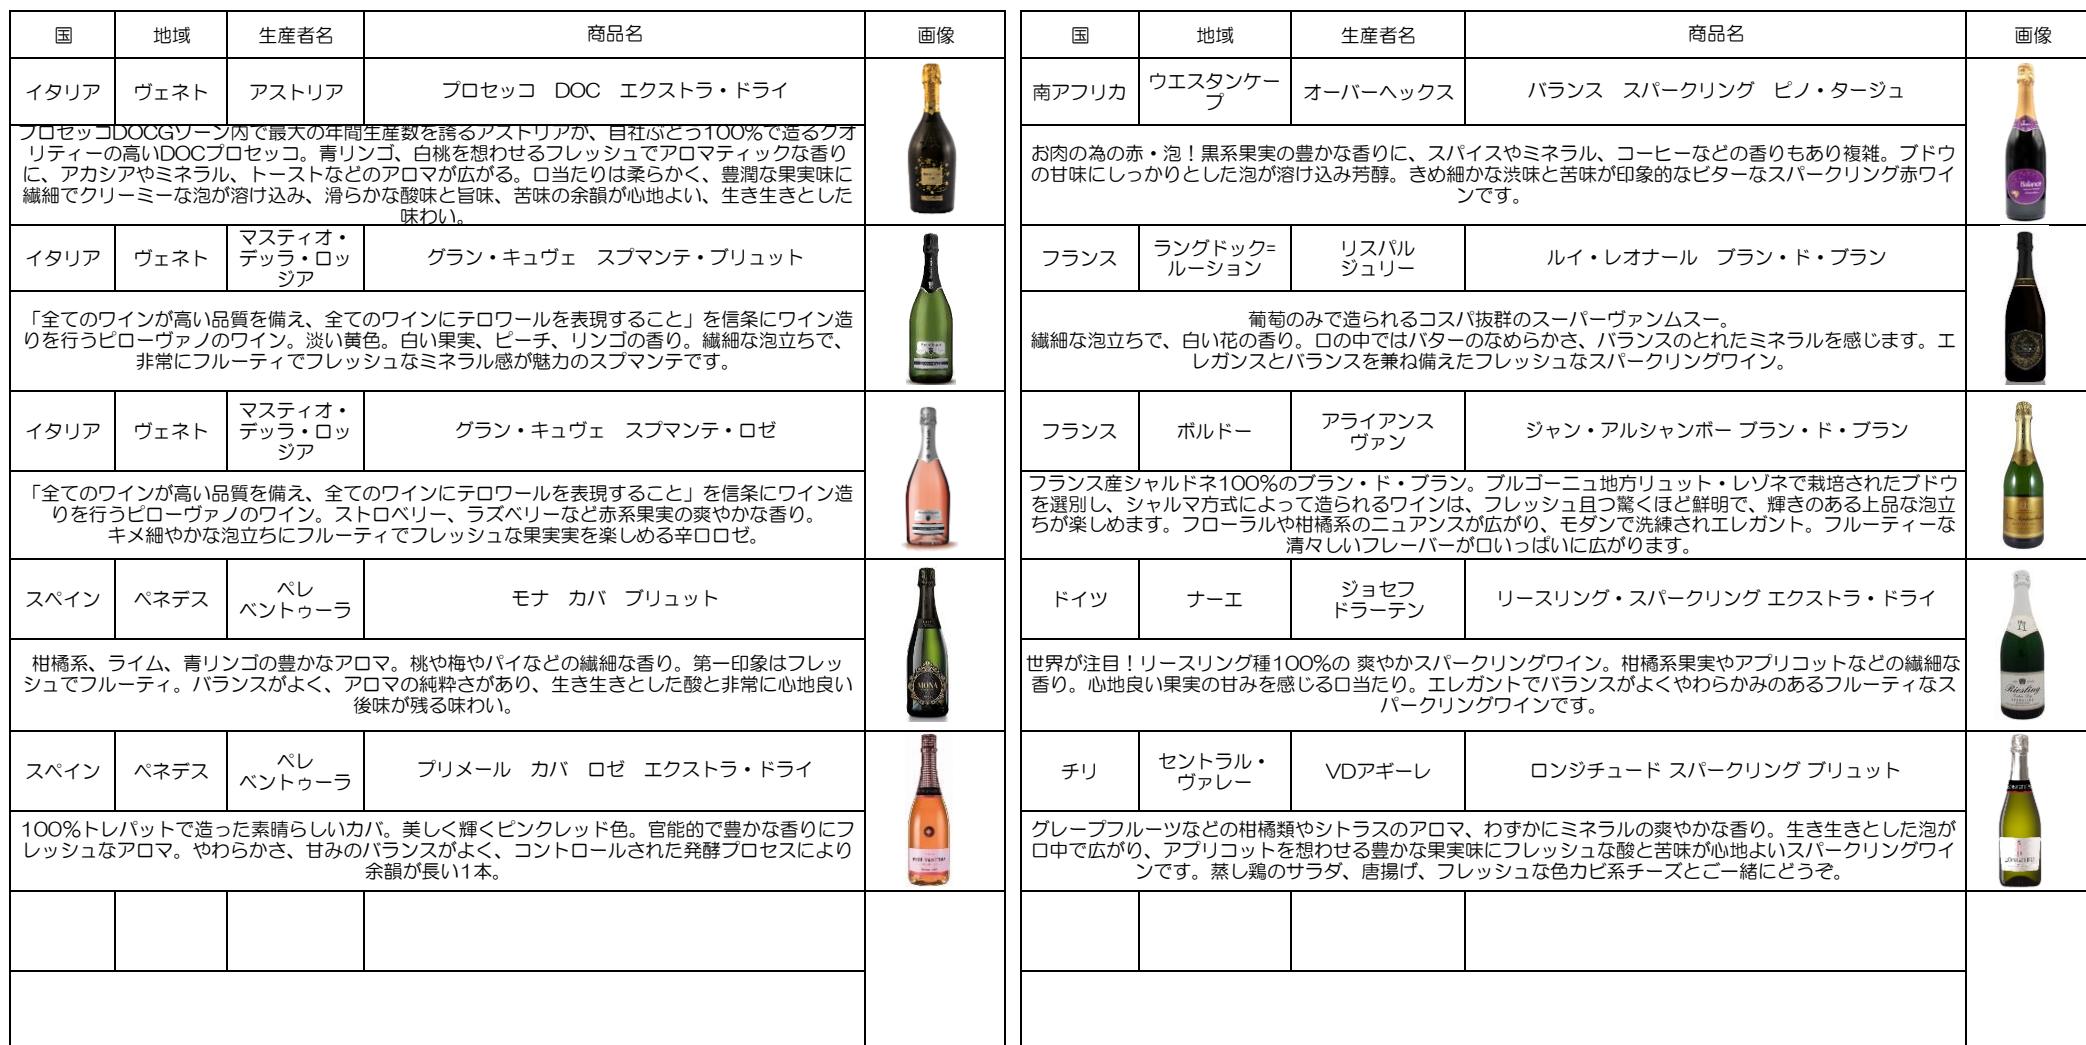 国 地域 生産者名 商品名 画像
イタリア ヴェネト アストリア プロセッコ　DOC　エクストラ・ドライ
プロセッコDOCGゾーン内で最大の年間生産数を誇るアストリアが、自社ぶどう100%で造るクオ
リティーの高いDOCプロセッコ。青リンゴ、白桃を想わせるフレッシュでアロマティックな香り
に、アカシアやミネラル、トーストなどのアロマが広がる。口当たりは柔らかく、豊潤な果実味に
繊細でクリーミーな泡が溶け込み、滑らかな酸味と旨味、苦味の余韻が心地よい、生き生きとした
味わい。
イタリア ヴェネト マスティオ・
デッラ・ロッ
ジア グラン・キュヴェ　スプマンテ・ブリュット
「全てのワインが高い品質を備え、全てのワインにテロワールを表現すること」を信条にワイン造
りを行うピローヴァノのワイン。淡い黄色。白い果実、ピーチ、リンゴの香り。繊細な泡立ちで、
非常にフルーティでフレッシュなミネラル感が魅力のスプマンテです。
イタリア ヴェネト マスティオ・
デッラ・ロッ
ジア グラン・キュヴェ　スプマンテ・ロゼ
「全てのワインが高い品質を備え、全てのワインにテロワールを表現すること」を信条にワイン造
りを行うピローヴァノのワイン。ストロベリー、ラズベリーなど赤系果実の爽やかな香り。
キメ細やかな泡立ちにフルーティでフレッシュな果実実を楽しめる辛口ロゼ。
スペイン ペネデス ペレ
ベントゥーラ モナ　カバ　ブリュット
柑橘系、ライム、青リンゴの豊かなアロマ。桃や梅やパイなどの繊細な香り。第一印象はフレッ
シュでフルーティ。バランスがよく、アロマの純粋さがあり、生き生きとした酸と非常に心地良い
後味が残る味わい。
MONA
スペイン ペネデス ペレ
ベントゥーラ プリメール　カバ　ロゼ　エクストラ・ドライ
100%トレパットで造った素晴らしいカバ。美しく輝くピンクレッド色。官能的で豊かな香りにフ
レッシュなアロマ。やわらかさ、甘みのバランスがよく、コントロールされた発酵プロセスにより
余韻が長い1本。
国 地域 生産者名 商品名 画像
南アフリカ ウエスタンケー
プ オーバーヘックス バランス　スパークリング　ピノ・タージュ
お肉の為の赤・泡！黒系果実の豊かな香りに、スパイスやミネラル、コーヒーなどの香りもあり複雑。ブドウ
の甘味にしっかりとした泡が溶け込み芳醇。きめ細かな渋味と苦味が印象的なビターなスパークリング赤ワイ
ンです。
Balance
フランス ラングドック=
ルーション リスパル
ジュリー ルイ・レオナール　ブラン・ド・ブラン
葡萄のみで造られるコスパ抜群のスーパーヴァンムスー。
繊細な泡立ちで、白い花の香り。口の中ではバターのなめらかさ、バランスのとれたミネラルを感じます。エ
レガンスとバランスを兼ね備えたフレッシュなスパークリングワイン。
フランス ボルドー アライアンス
ヴァン ジャン・アルシャンボー ブラン・ド・ブラン
フランス産シャルドネ100%のブラン・ド・ブラン。ブルゴーニュ地方リュット・レゾネで栽培されたブドウ
を選別し、シャルマ方式によって造られるワインは、フレッシュ且つ驚くほど鮮明で、輝きのある上品な泡立
ちが楽しめます。フローラルや柑橘系のニュアンスが広がり、モダンで洗練されエレガント。フルーティーな
清々しいフレーバーが口いっぱいに広がります。
ドイツ ナーエ ジョセフ
ドラーテン リースリング・スパークリング エクストラ・ドライ
世界が注目！リースリング種100%の 爽やかスパークリングワイン。柑橘系果実やアプリコットなどの繊細な
香り。心地良い果実の甘みを感じる口当たり。エレガントでバランスがよくやわらかみのあるフルーティなス
パークリングワインです。
Riesling
チリ セントラル・
ヴァレー VDアギーレ ロンジチュード スパークリング ブリュット
グレープフルーツなどの柑橘類やシトラスのアロマ、わずかにミネラルの爽やかな香り。生き生きとした泡が
口中で広がり、アプリコットを想わせる豊かな果実味にフレッシュな酸と苦味が心地よいスパークリングワイ
ンです。蒸し鶏のサラダ、唐揚げ、フレッシュな色カビ系チーズとご一緒にどうぞ。